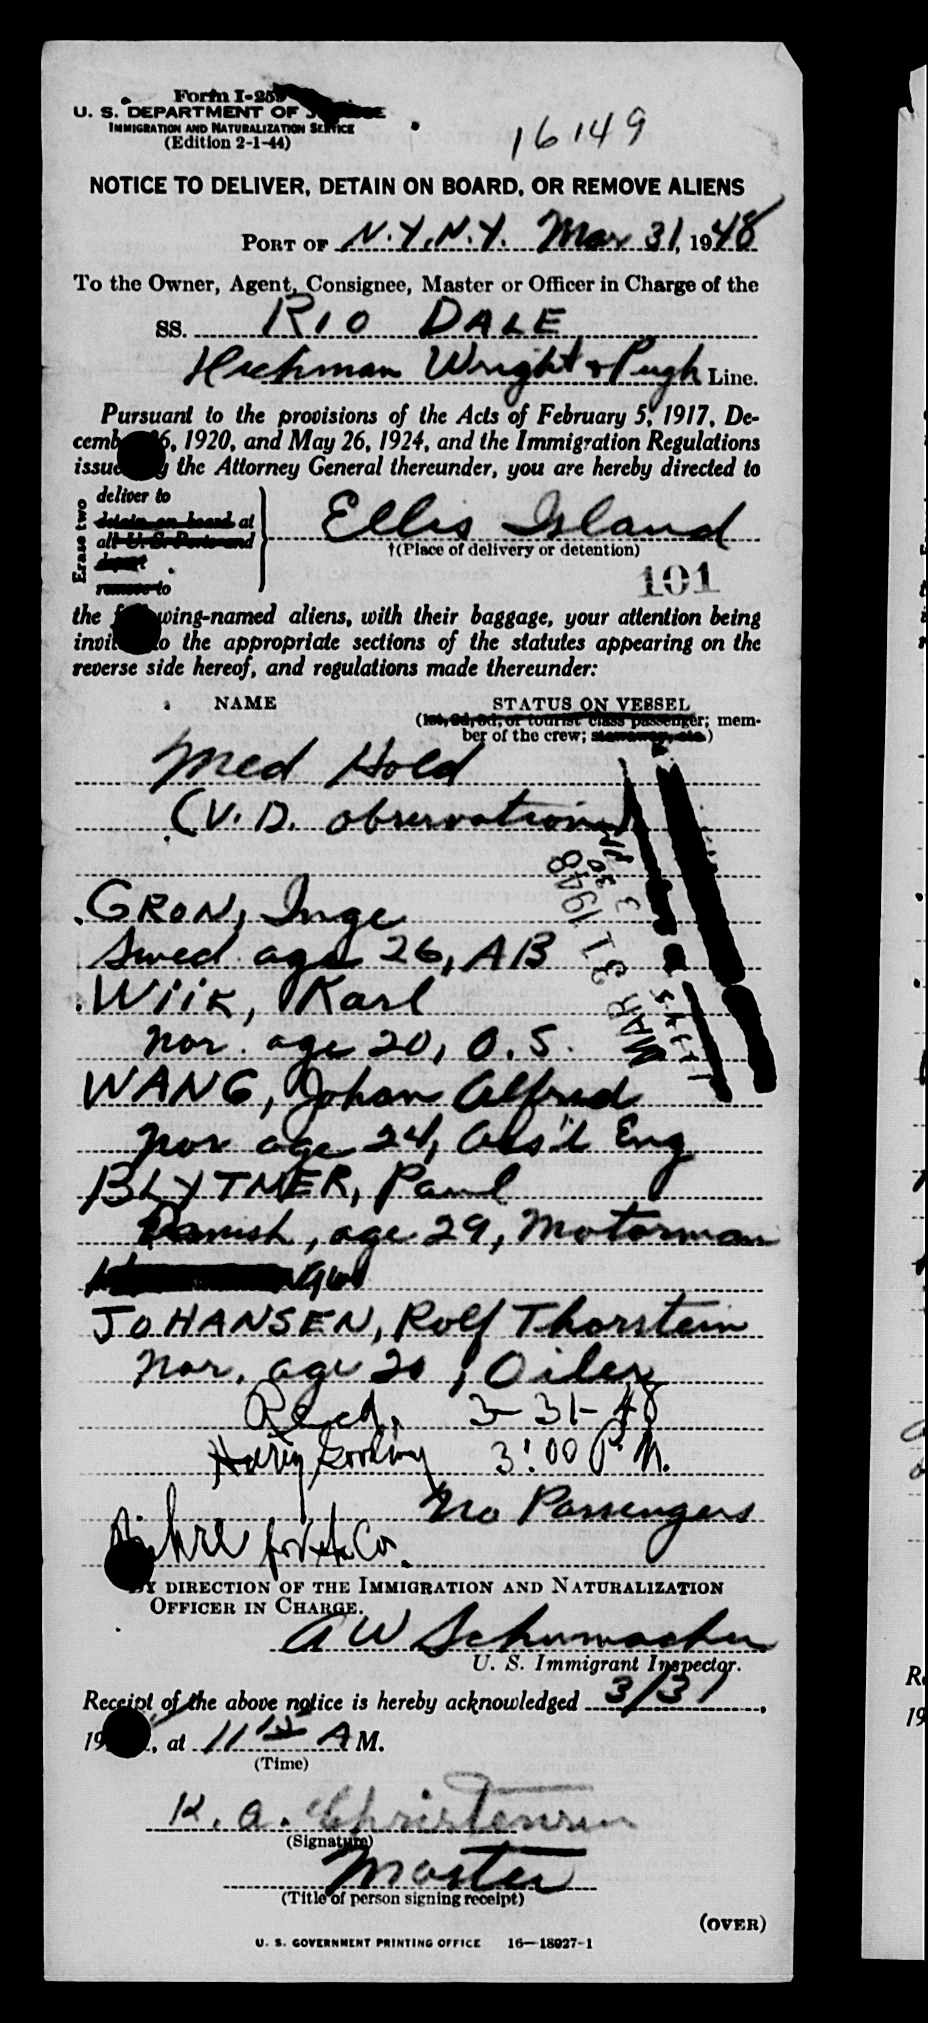 Form I-259
U. S. DEPARTMENT OF
IMMIGRATION AND NATURALIZATION SERVICE
(Edition 2-1-44)
16149
NOTICE TO DELIVER, DETAIN ON BOARD, OR REMOVE ALIENS
PORT OF N.Y.N.Y. Mar 31, 1948
To the Owner, Agent, Consignee, Master or Officer in Charge of the
SS. RIO DALE
Heckman Wright & Pugh Line.
Pursuant to the provisions of the Acts of February 5, 1917, De-
cember 26, 1920, and May 26, 1924, and the Immigration Regulations
issued by the Attorney General thereunder, you are hereby directed to
Erase two
deliver to
detain on board at
all U. S. Ports and
depart
remove to
Ellis Island
†(Place of delivery or detention)
101
the following-named aliens, with their baggage, your attention being
invited to the appropriate sections of the statutes appearing on the
reverse side hereof, and regulations made thereunder:
NAME STATUS ON VESSEL
(1st, 2d, 3d, or tourist class passenger; mem-
ber of the crew; stowaway, etc.)
Med Hold
(V.D. observation)
MAR 31 1948
GRON, Inge
Swed age 26, AB
WIIK, Karl
Nor. age 20, O.S.
WANG, Johan Alfred
Nor age 24, Ass't Eng
BLYTMER, Paul
Danish, age 29, Motorman
JOHANSEN, Rolf Thorstein
Nor. age 20, Oiler
Recd. 3-31-48
Harry Gooding 3:00 P.M.
No Passengers
for Co.
BY DIRECTION OF THE IMMIGRATION AND NATURALIZATION
OFFICER IN CHARGE.
A W Schumacher
U. S. Immigrant Inspector.
Receipt of the above notice is hereby acknowledged 3/31,
19 , at 11 15 A M.
(Time)
K. A. Christensen
(Signature)
Master
(Title of person signing receipt)
(OVER)
U. S. GOVERNMENT PRINTING OFFICE 16—18027-1